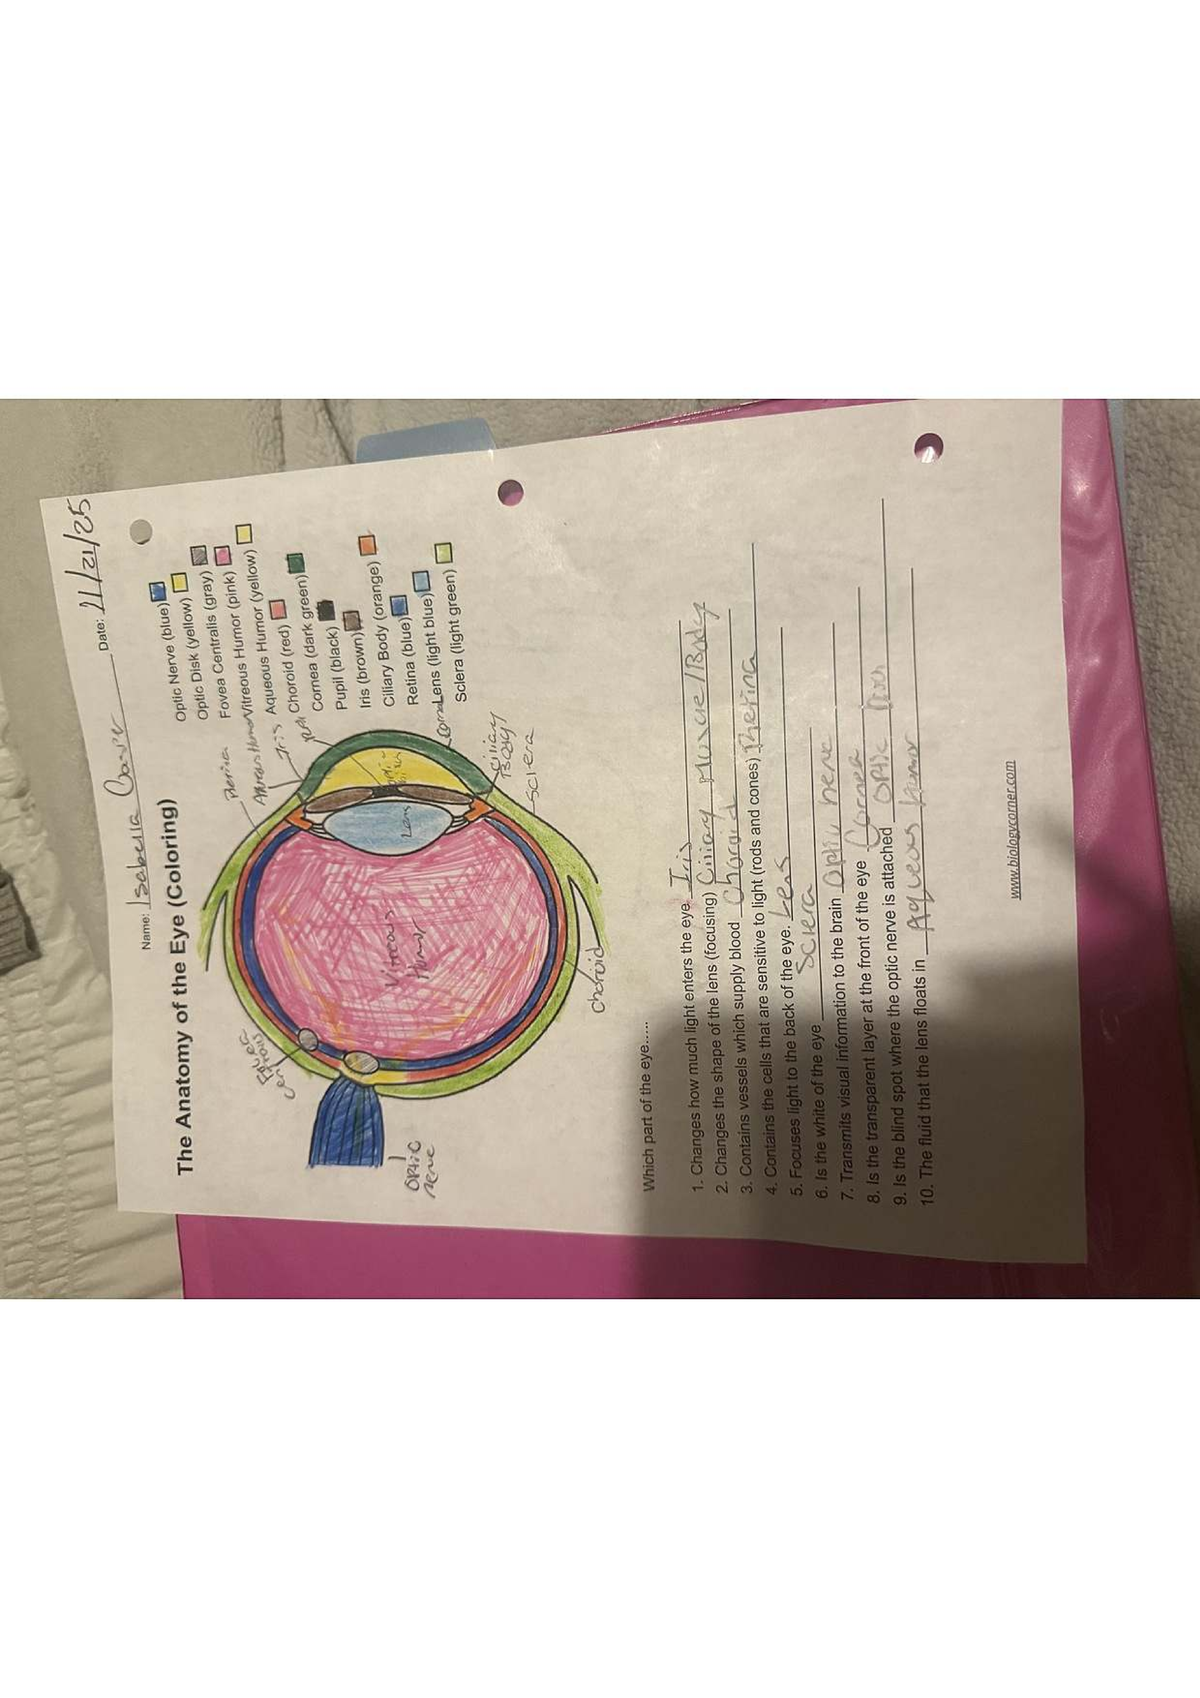 Name: Isabella Date: 11/21/25
The Anatomy of the Eye (Coloring)
Optic Nerve (blue)
Optic Disk (yellow)
Fovea Centralis (gray)
Vitreous Humor (pink)
Aqueous Humor (yellow)
Choroid (red)
Cornea (dark green)
Pupil (black)
Iris (brown)
Ciliary Body (orange)
Retina (blue)
Lens (light blue)
Sclera (light green)
Iris
Lens
Ciliary
Body
Sclera
Vitreous
Choroid
Optic
nerve
Which part of the eye.....
1. Changes how much light enters the eye. Iris
2. Changes the shape of the lens (focusing) Ciliary Muscle/Body
3. Contains vessels which supply blood Choroid
4. Contains the cells that are sensitive to light (rods and cones) Rherina
5. Focuses light to the back of the eye. Lens
6. Is the white of the eye Sclera
7. Transmits visual information to the brain Optic nerve
8. Is the transparent layer at the front of the eye Cornea
9. Is the blind spot where the optic nerve is attached Optic
10. The fluid that the lens floats in Aqueous
www.biologycorner.com